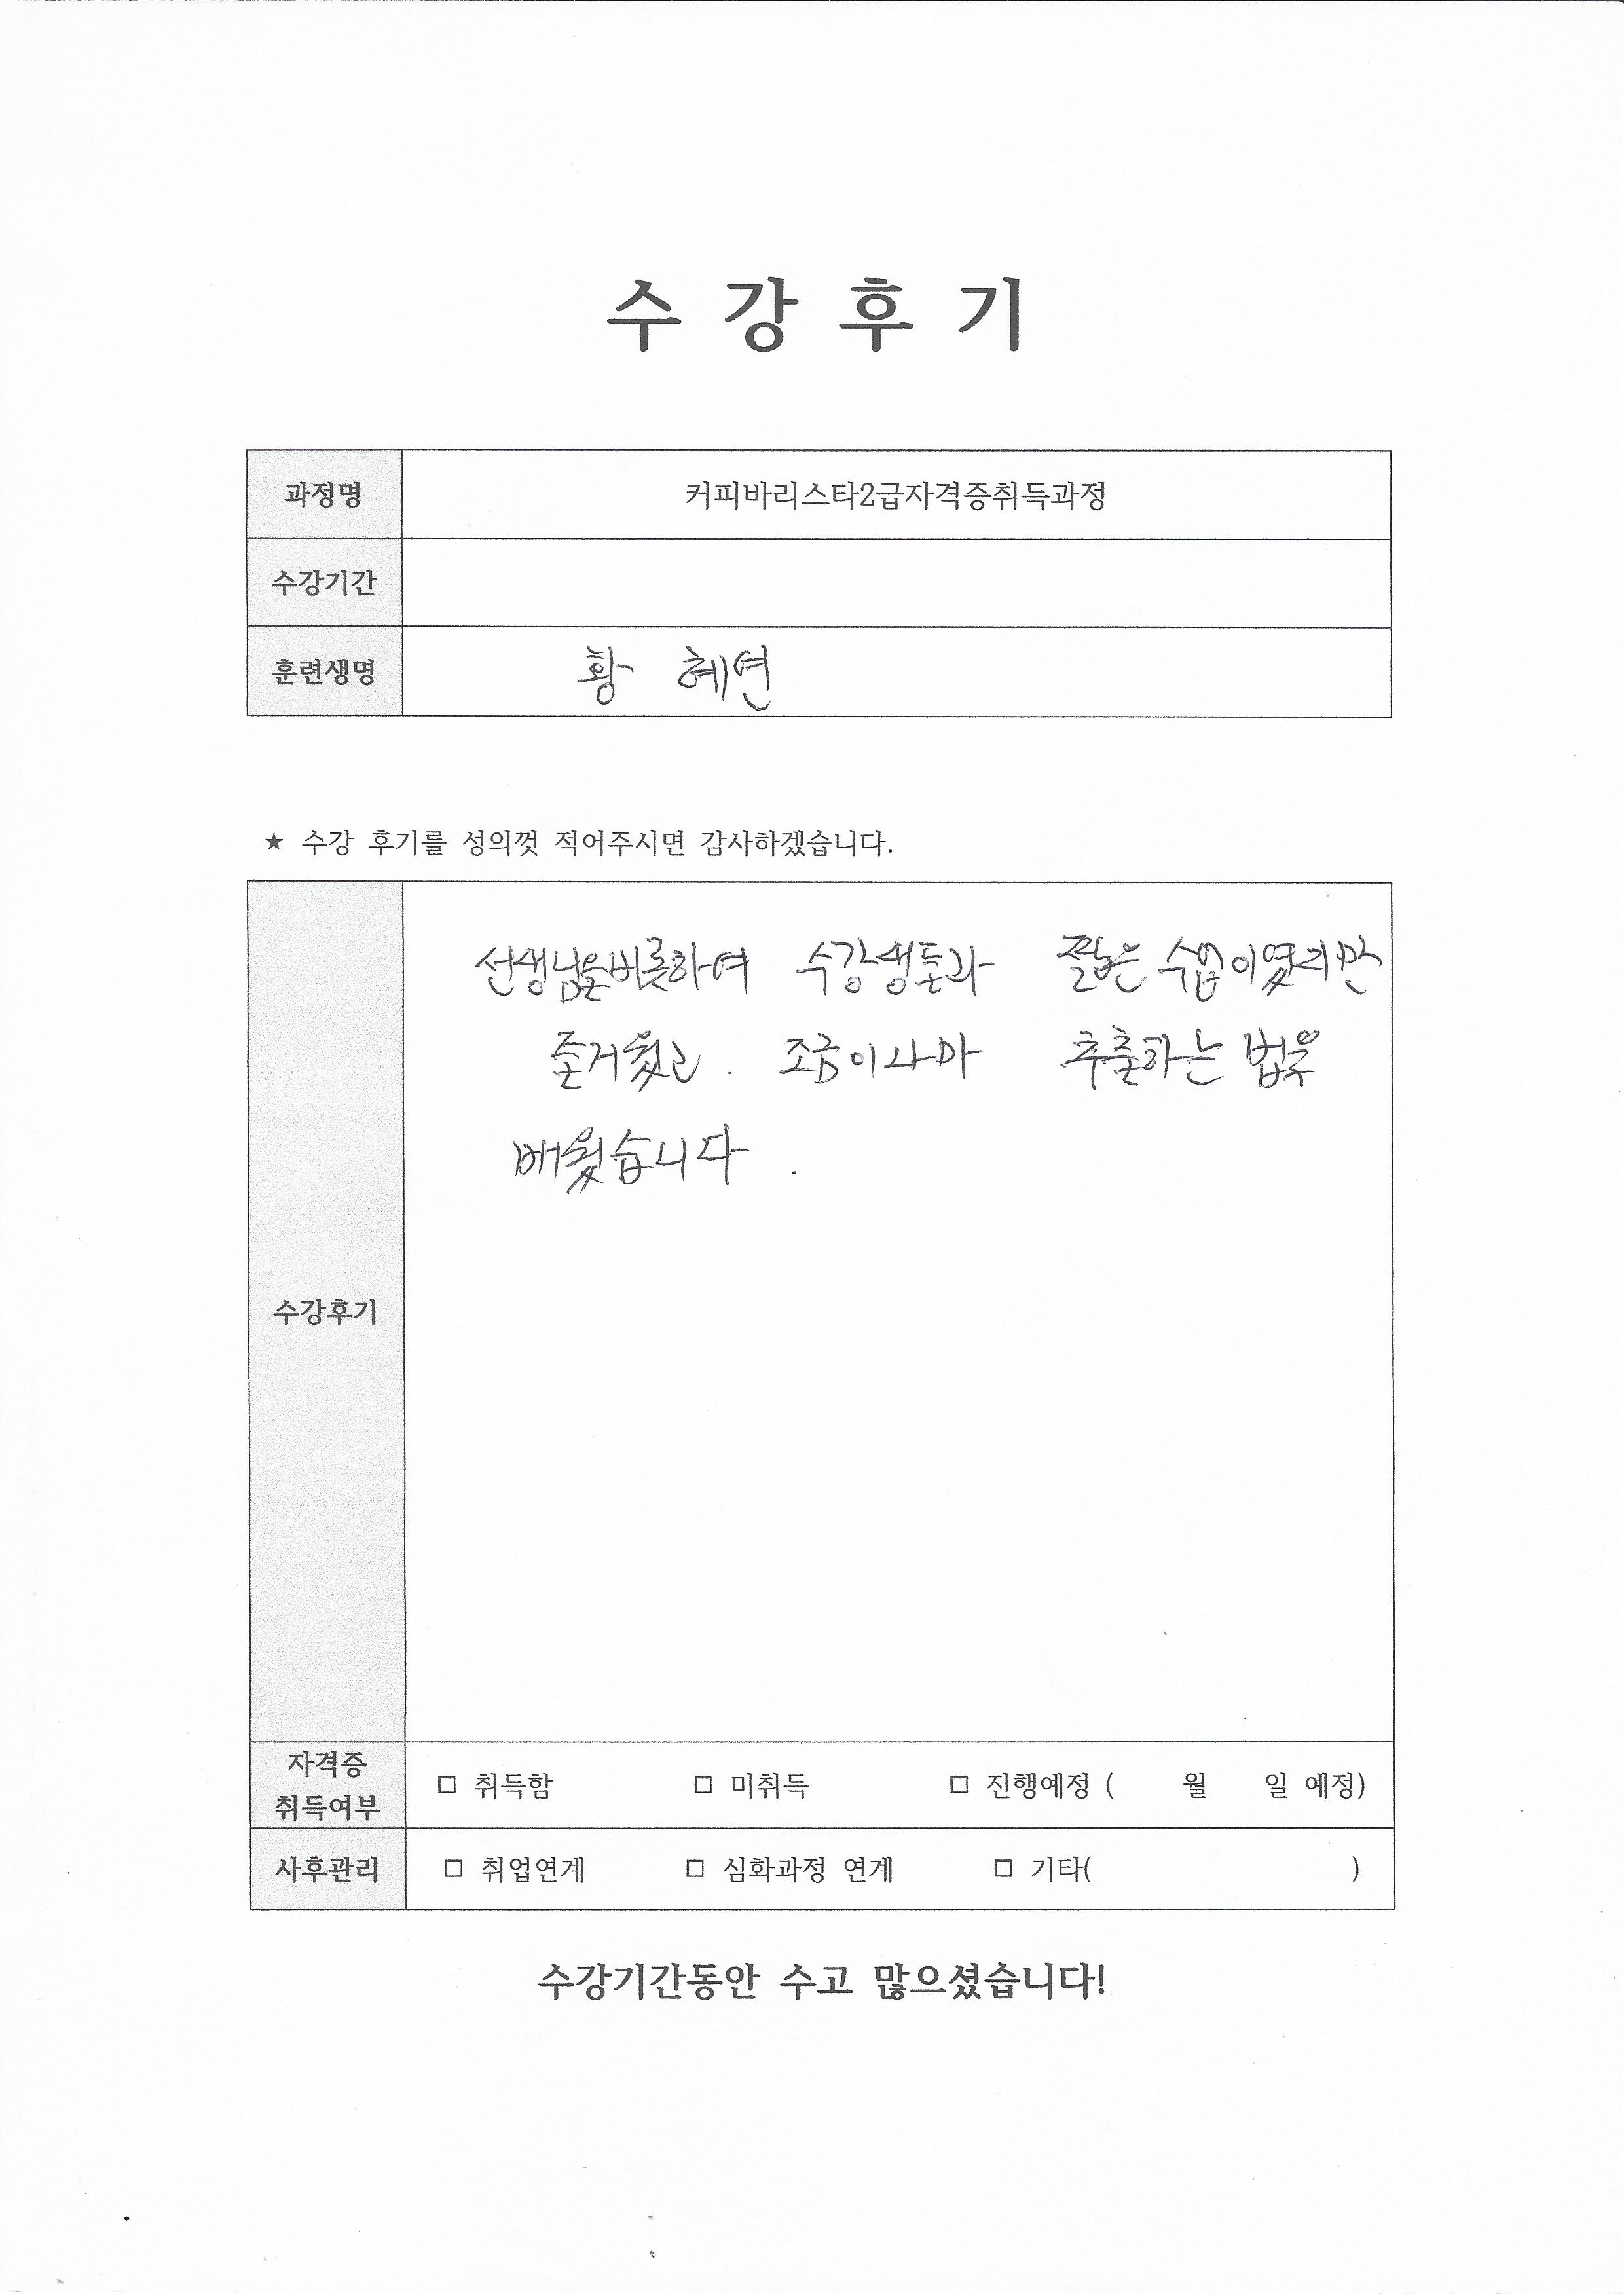 수 강 후 기
과정명 커피바리스타2급자격증취득과정
수강기간
훈련생명 황 혜연
★ 수강 후기를 성의껏 적어주시면 감사하겠습니다.
수강후기
선생님을비롯하여 수강생들과 짧은 수업이였지만
즐거웠고. 조금이나마 추출하는 법을
배웠습니다.
자격증
취득여부
□ 취득함 □ 미취득 □ 진행예정 ( 월 일 예정)
사후관리 □ 취업연계 □ 심화과정 연계 □ 기타( )
수강기간동안 수고 많으셨습니다!